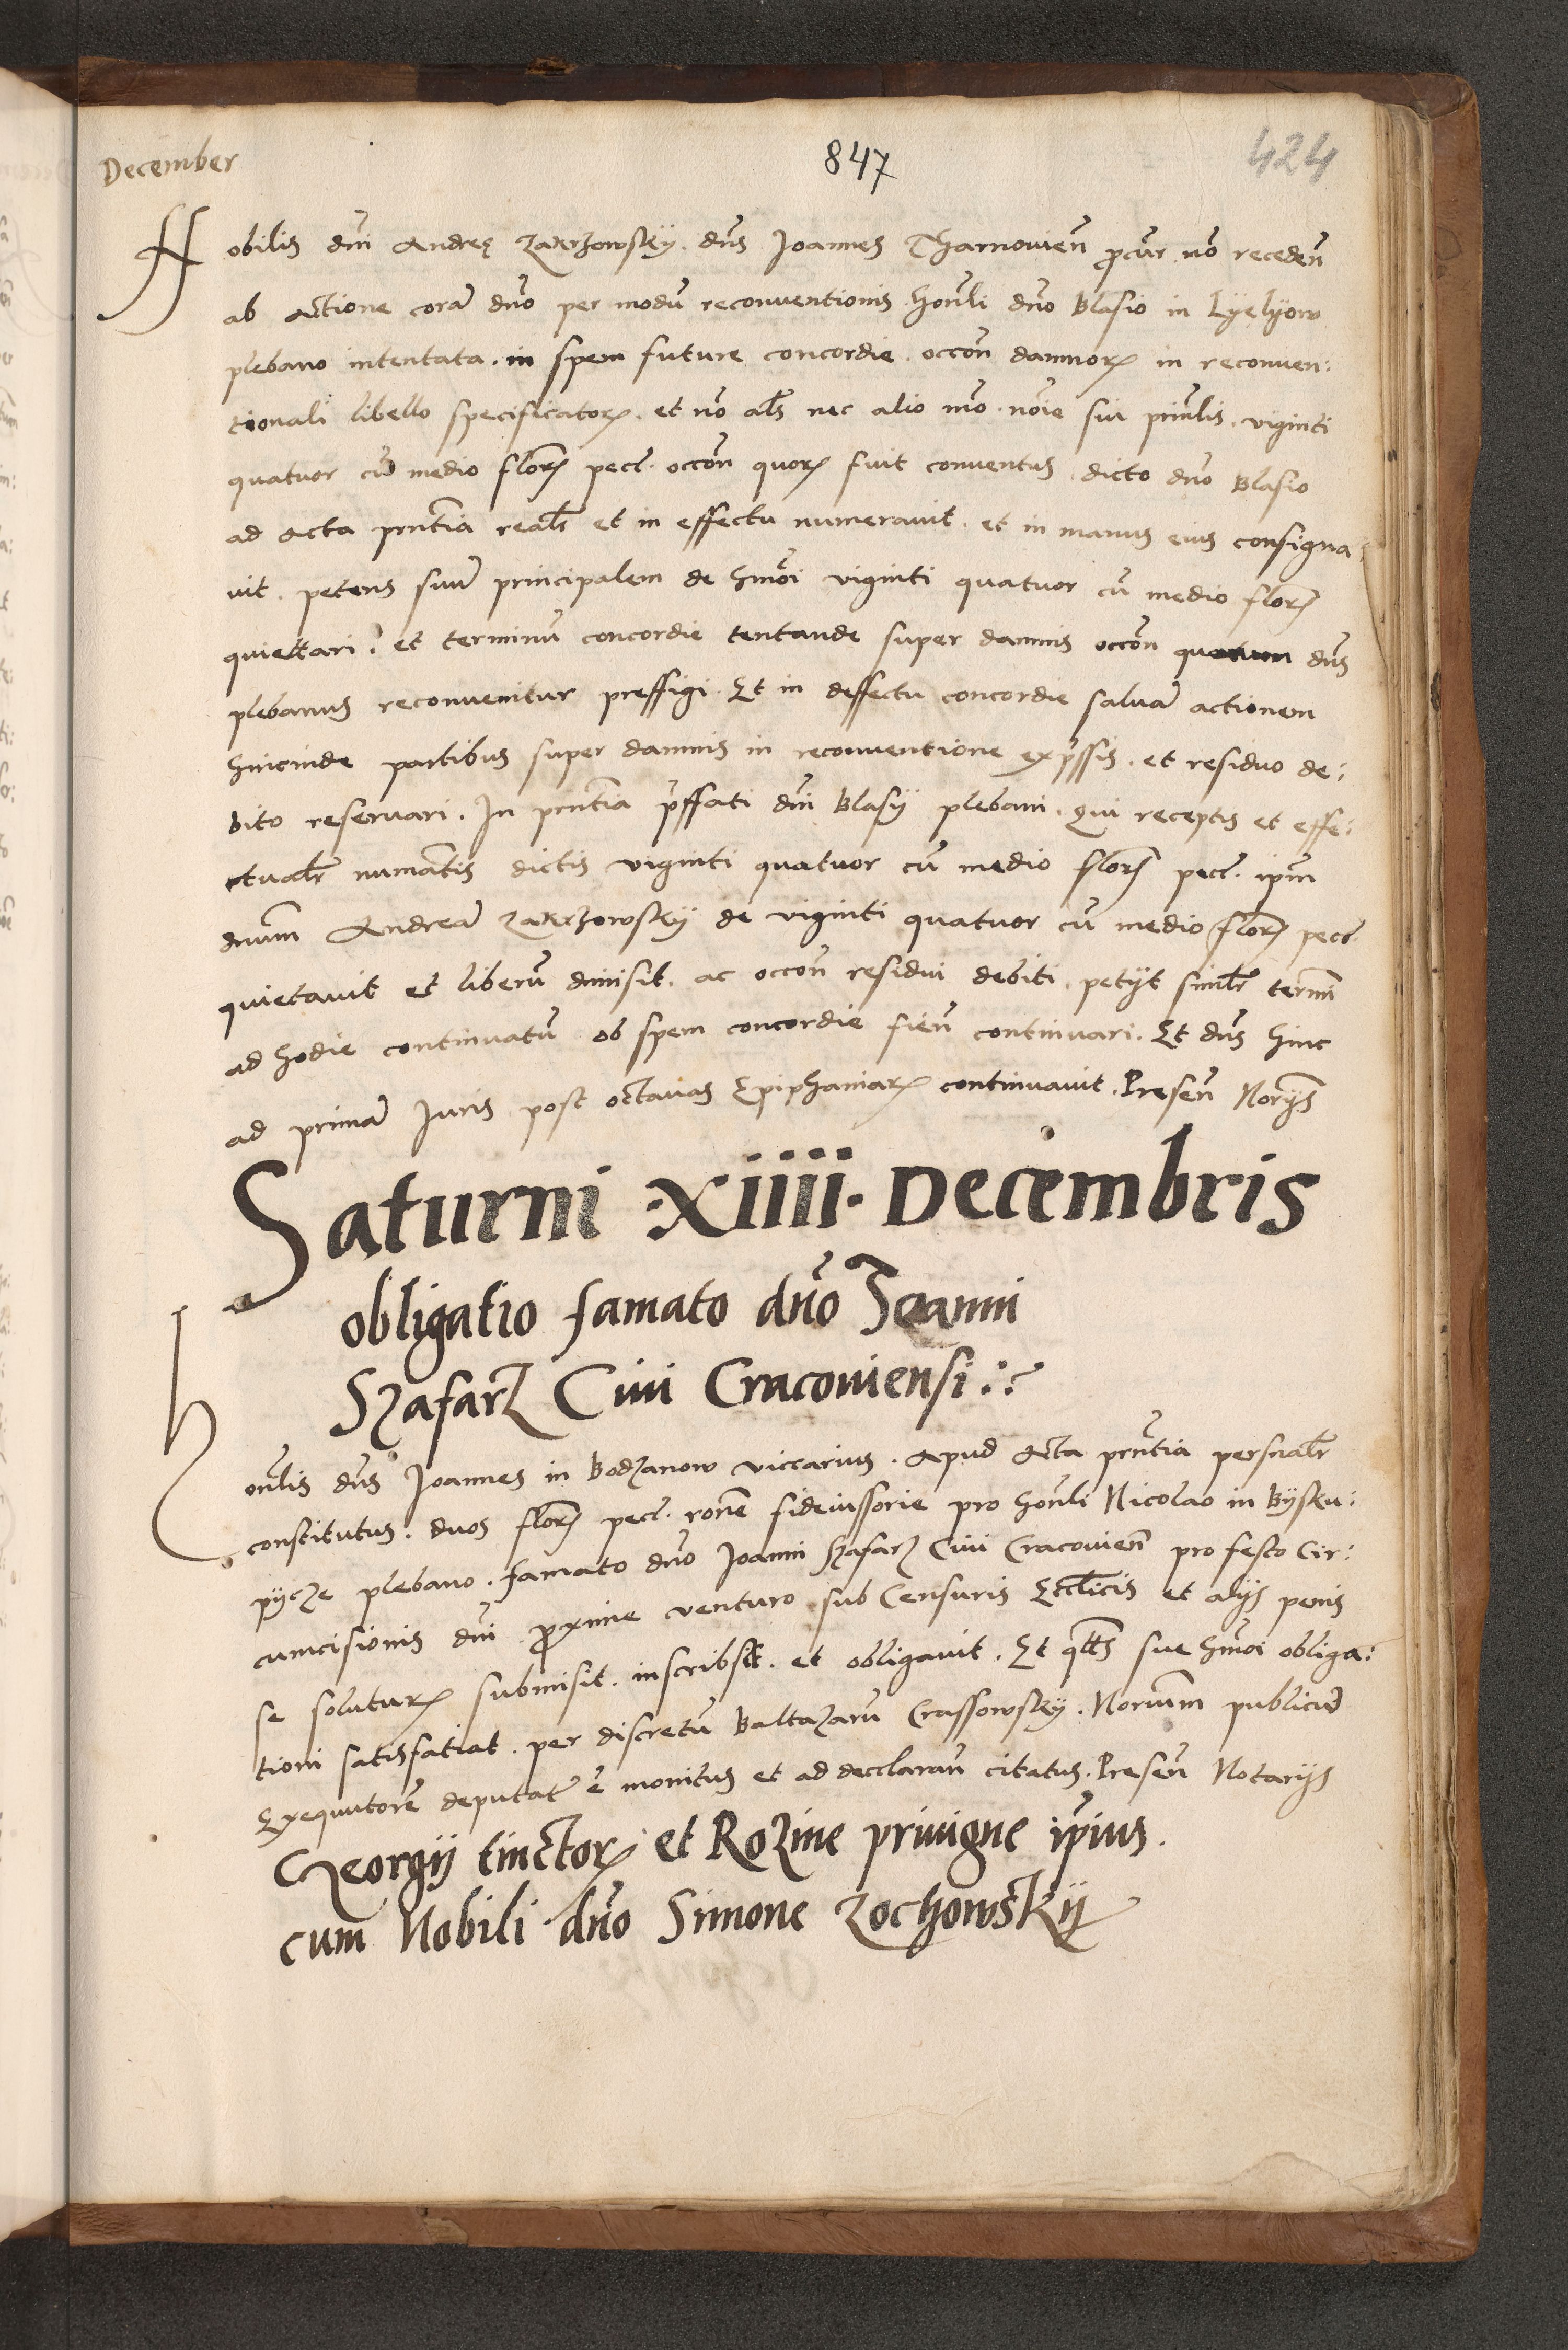 December
847
424
Nobilis dni Andreę Zakrzowskÿ. dns Joannes Tharnovien procur no receden
ab actione cora dno per modu reconventionis honli dno Blasio in Lÿelÿow
plebano intentata. in spem future concordie. occon damnorꝝ in reconven:
tionali libello specificatorꝝ. et no als nec alio mo. noie sui prinlis. viginti
quatuor cu medio florꝝ pecc. occon quorꝝ fuit conventus. dicto dno Blasio
ad acta prntia realr et in effectu numeravit. et in manus eius consigna:
vit. petens suu principalem de hmoi viginti quatuor cu medio florꝝ
quiettari. et terminu concordie tentande super damnis occon quorum dns
plebanus reconvenitur preffigi. Et in deffectu concordie salva actionem
hincinde partibus super damnis in reconventione expssis. et residuo de:
bito reservari. In prntia pffati dni Blasÿ plebani. qui receptis et effe:
ctualr numatis dictis viginti quatuor cu medio florꝝ pecc. ipm
dnum Andrea Zakrzowskÿ de viginti quatuor cu medio florꝝ pecc.
quietavit et liberu dimisit. ac occon residui debiti. petÿt similr termi
ad hodie continuatu ob spem concordie fien continuari. Et dns hinc
ad prima Juris post octavas Epiphaniarꝝ continuavit. Presen Norÿs
Saturni .Xiiii. Decembris
obligatio famato dno Joanni
Szafarz Civi Cracoviensi
honlis dns Joannes in Bodzanow viccarius. apud acta prntia persnalr
constitutus. duos florꝝ pecc. rone fideiussorie pro honli Nicolao in Bÿsku:
pÿcze plebano. famato dno Joanni Szafarz Civi Cracovien pro festo Cir:
cumcisionis dni proxime venturo sub Censuris Ecclicis et alÿs penis
se soluturꝝ submisit. inscribsit. et obligavit. Et qtts sue hmoi obliga:
tioni satisfatiat. per discretu Baltazaru Crassowskÿ. Noriumm publicu
Exequutore deputat e monitus et ad decclaran citatus. Presen Notarÿs
Georgÿ tinctorꝝ et Rozine privigne ipius.
cum Nobili dno Simone Zochowskÿ